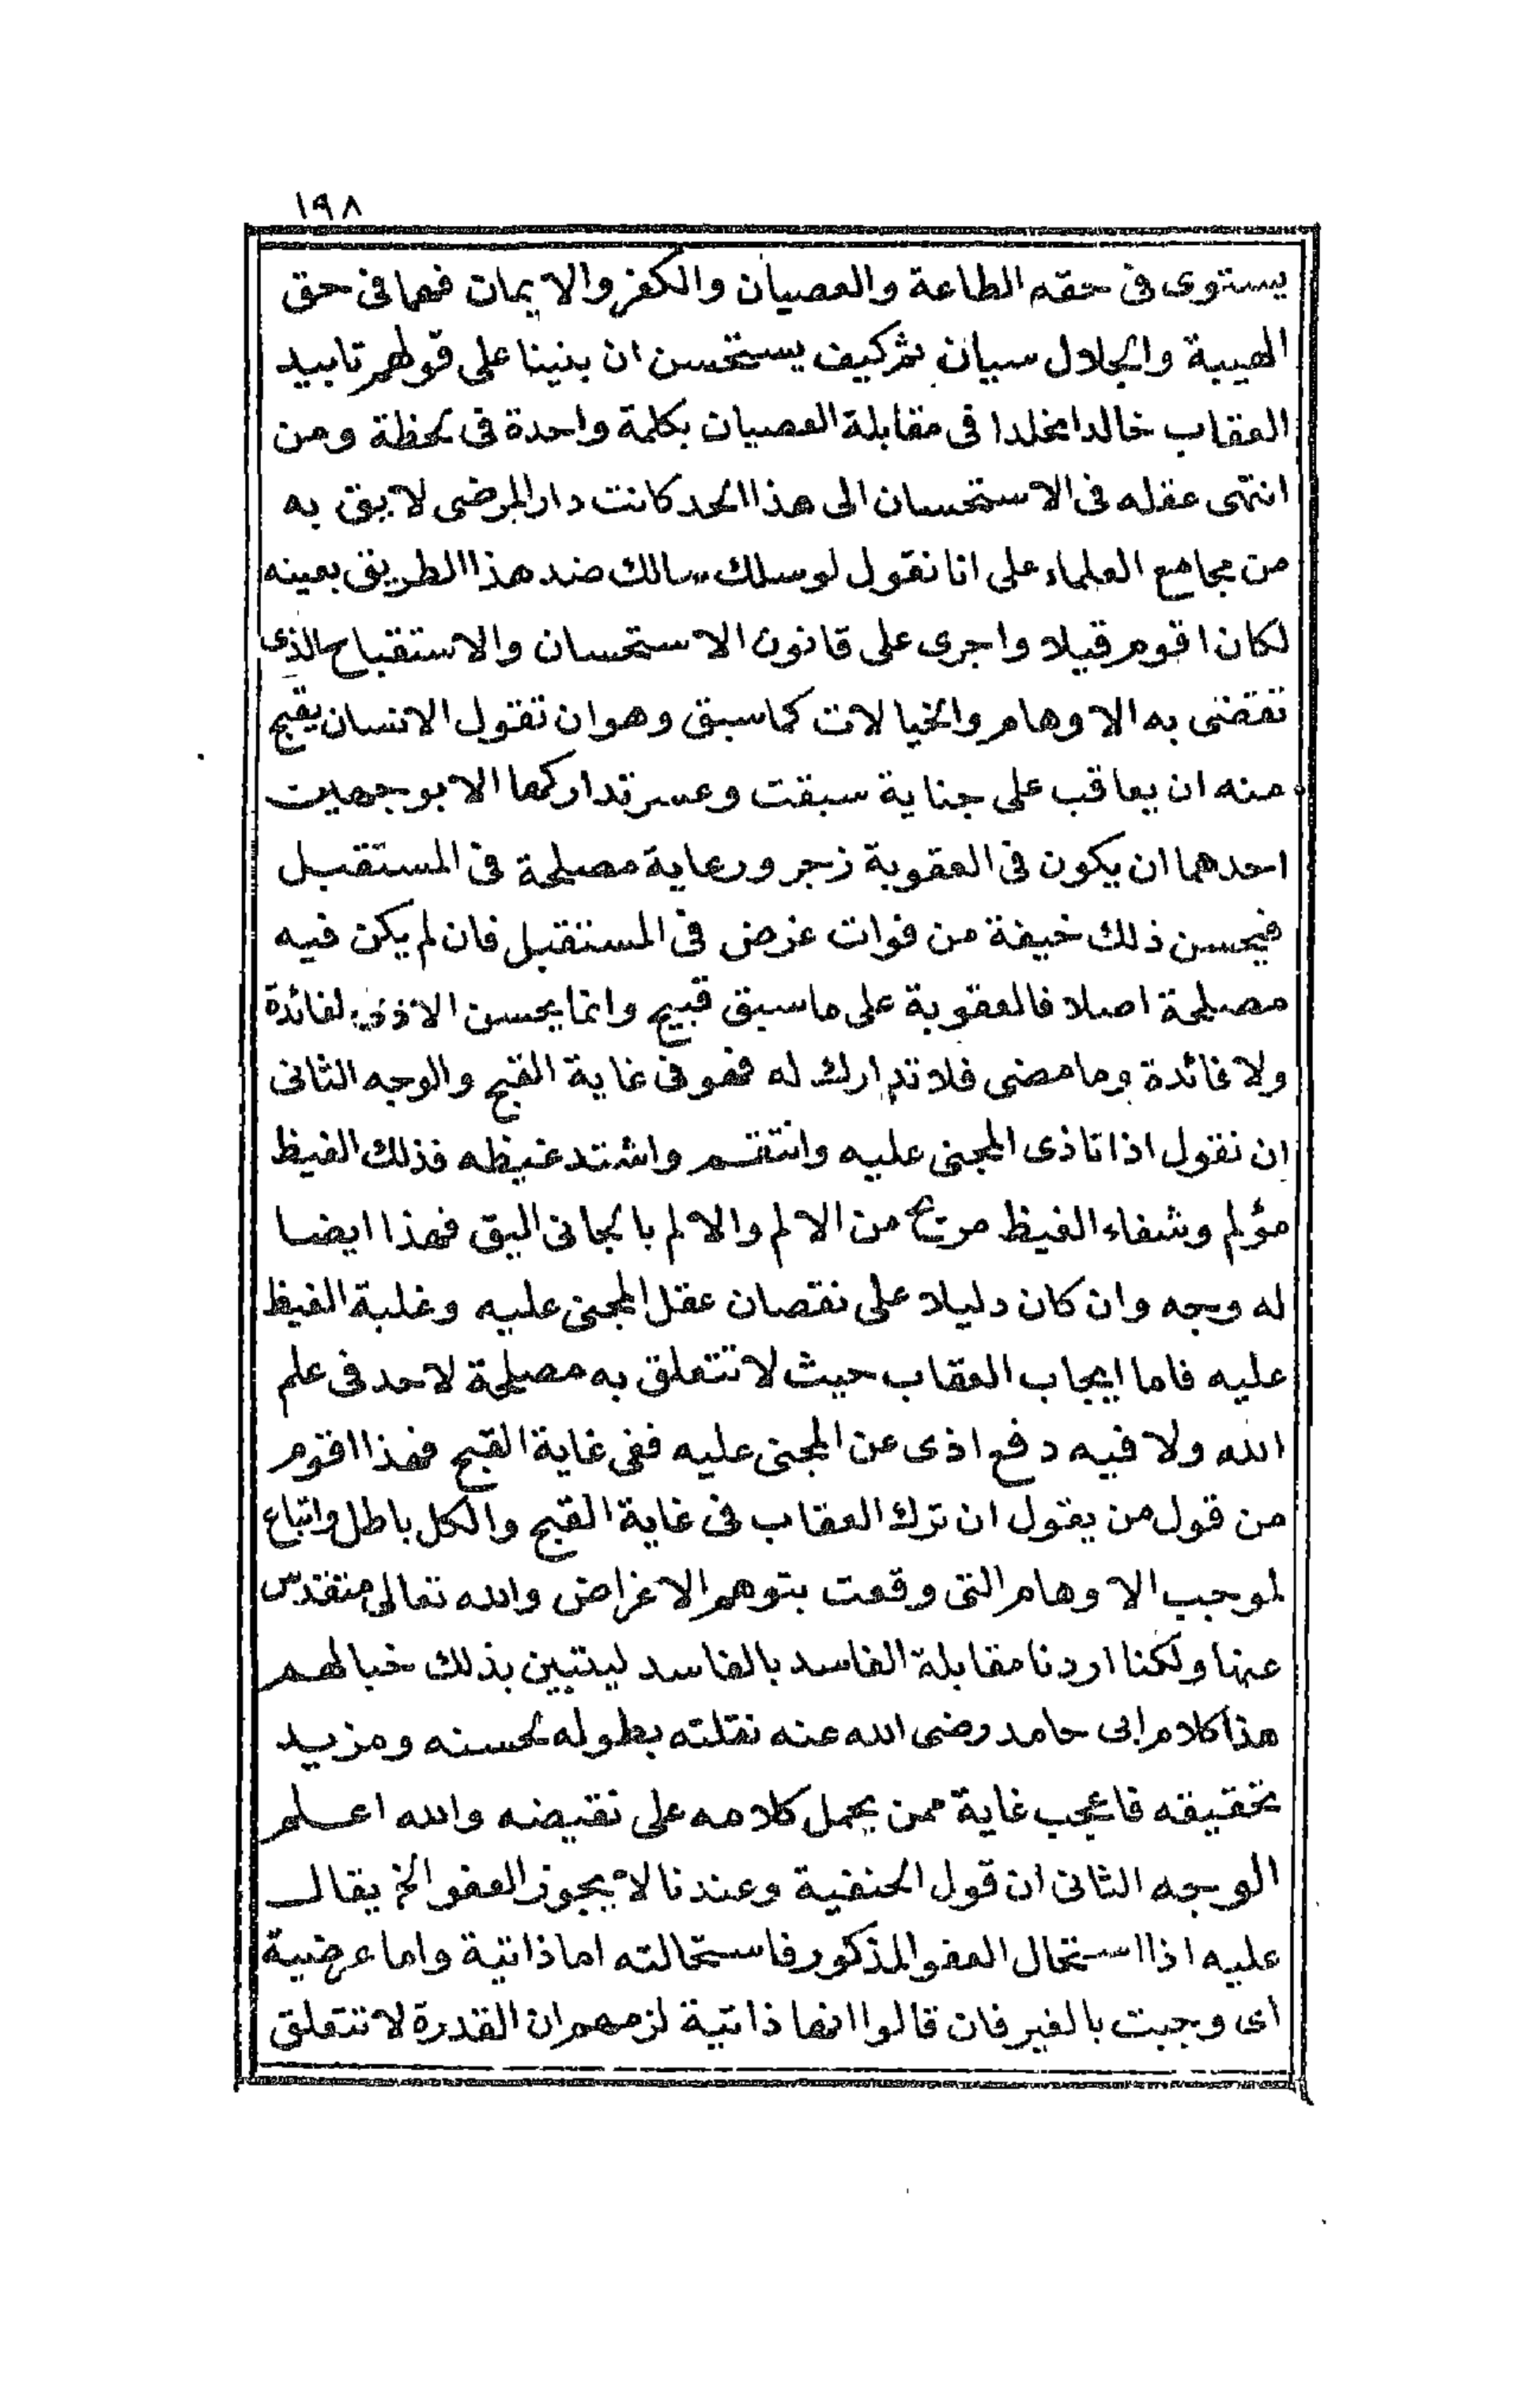 ١٩٨
يستوى فى حقه الطاعة والعصيان والكفر والايمان فهما فى حق
الهيبة والجلال سيان ثم كيف يستحسن ان بنينا على قولهم تابيد
العقاب خالدا مخلدا فى مقابلة العصيان بكلمة واحدة فى لحظة ومن
انتهى عقله فى الاستحسان الى هذا الحد كانت دار المرضى لايق به
من مجامع العلماء على انا نقول لو سلك سالك ضد هذا الطريق بعينه
لكان اقوم قيلا واجرى على قانون الاستحسان والاستقباح الذى
تقضى به الاوهام والخيالات كما سبق وهو ان تقول الانسان يقبح
منه ان يعاقب على جناية سبقت وعسر تداركها الا بوجهين
احدهما ان يكون فى العقوبة زجر ورعاية مصلحة فى المستقبل
فيحسن ذلك خيفة من فوات غرض فى المستقبل فان لم يكن فيه
مصلحة اصلا فالعقوبة على ما سبق قبيح وانما يحسن الاذى لفائدة
ولا فائدة وما مضى فلا تدارك له فهو فى غاية القبح والوجه الثانى
ان نقول اذا تاذى المجنى عليه وانتقم واشتد غيظه فذلك الغيظ
مؤلم وشفاء الغيظ مريح من الالم والالم بالجانى اليق فهذا ايضا
له وجه وان كان دليلا على نقصان عقل المجنى عليه وغلبة الغيظ
عليه فاما ايجاب العقاب حيث لا تتعلق به مصلحة لاحد فى علم
الله ولا فيه دفع اذى عن المجنى عليه ففى غاية القبح فهذا اقوم
من قول من يقول ان ترك العقاب فى غاية القبح والكل باطل واتباع
لموجب الاوهام التى وقعت بتوهم الاغراض والله تعالى متقدس
عنها ولكنا اردنا مقابلة الفاسد بالفاسد ليتبين بذلك خبالهم
هذا كلام ابى حامد رضى الله عنه نقلته بطوله لحسنه ومزيد
تحقيقه فاعجب غاية ممن يحمل كلامه على نقيضه والله اعلم
الوجه الثانى ان قول الحنفية وعندنا لا يجوز العفو الخ يقال
عليه اذا استحال العفو المذكور فاستحالته اما ذاتية واما عرضية
اى وجبت بالغير فان قالوا انها ذاتية لزمهم ان القدرة لا تتعلق